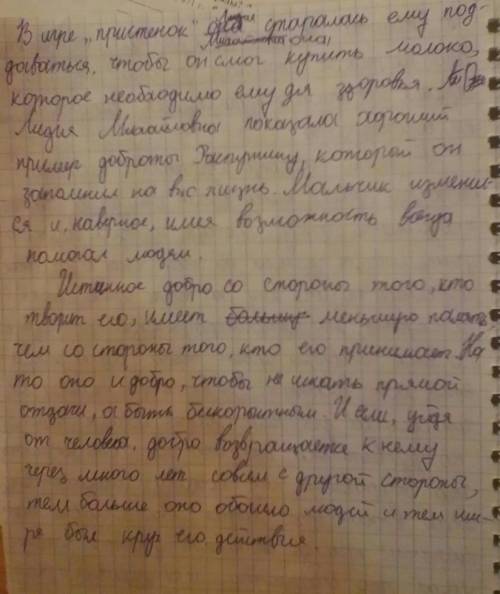 В игре „пристенок" она старалась ему под-
даваться, чтобы он смог купить молоко,
которое необходимо ему для здоровья.
Лидия Михайловна показала хороший
пример доброты Распутину, который он
запомнил на всю жизнь. Мальчик изменил-
ся и, наверное, имея возможность всегда
помогал людям.
Истинное добро со стороны того, кто
творит его, имеет меньшую память,
чем со стороны того, кто его принимает. На
то оно и добро, чтобы не искать прямой
отдачи, а быть бескорыстным. И если, уйдя
от человека, добро возвращается к нему
через много лет совсем с другой стороны,
тем больше оно обошло людей и тем ши-
ре был круг его действия